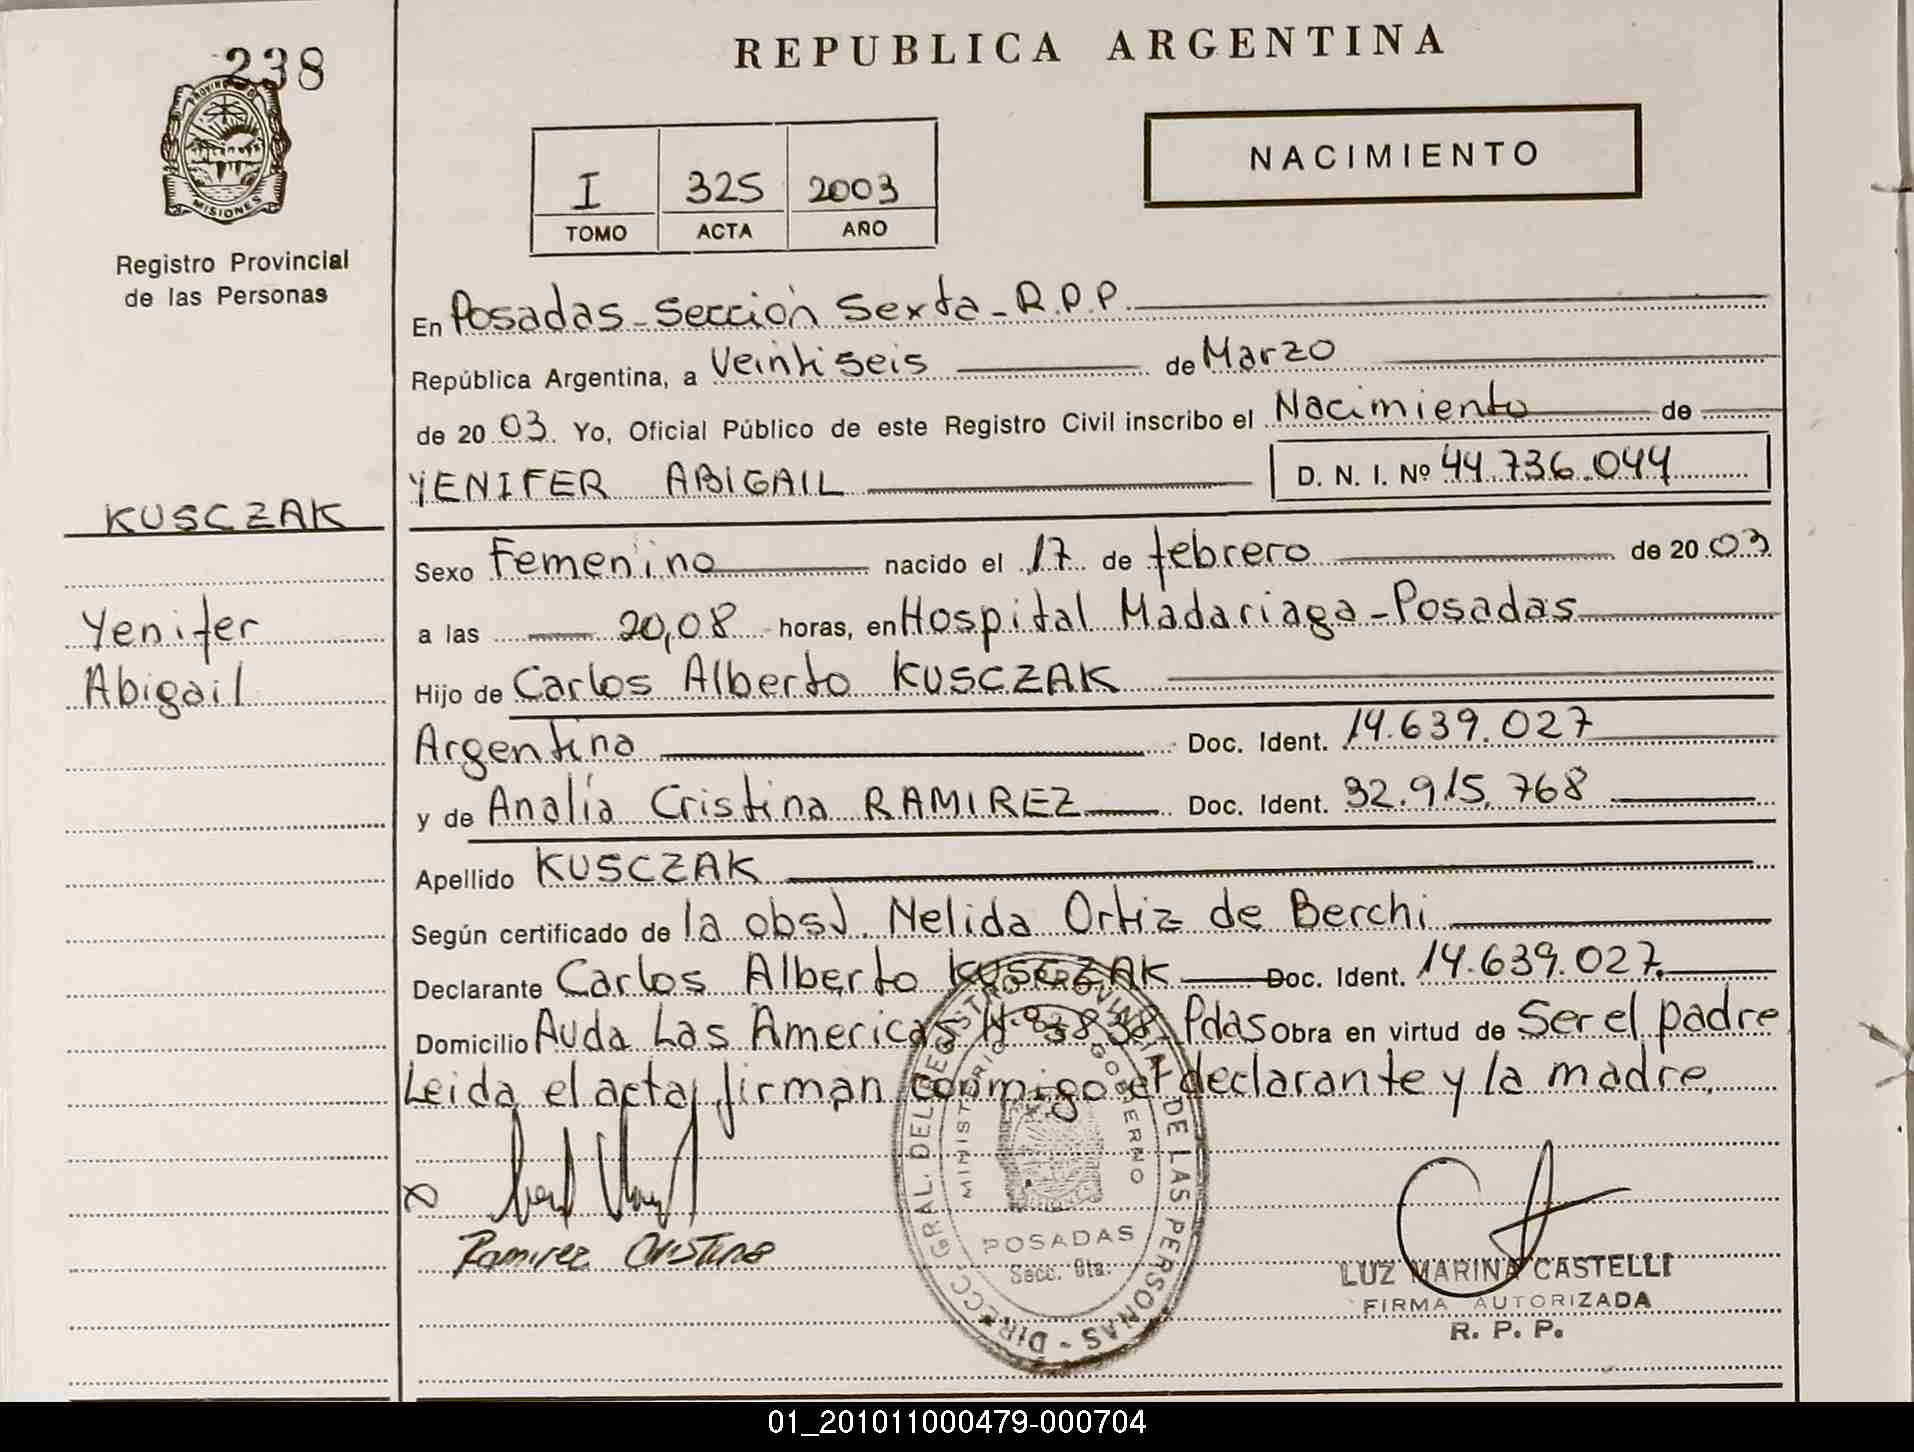 238
REPUBLICA ARGENTINA
MISIONES
Registro Provincial
de las Personas
I 325 2003
TOMO ACTA AÑO
NACIMIENTO
En Posadas - Sección Sexta - R.P.P.
República Argentina, a Veintiseis de Marzo
de 20 03. Yo, Oficial Público de este Registro Civil inscribo el Nacimiento de
YENIFER ABIGAIL D. N. I. Nº 44.736.044
KUSCZAK
Yenifer
Abigail
Sexo Femenino nacido el 17 de febrero de 20 03
a las 20,08 horas, en Hospital Madariaga - Posadas
Hijo de Carlos Alberto KUSCZAK
Argentino Doc. Ident. 14.639.027
y de Analía Cristina RAMIREZ Doc. Ident. 32.915.768
Apellido KUSCZAK
Según certificado de la obst. Nelida Ortiz de Berchi
Declarante Carlos Alberto KUSCZAK Doc. Ident. 14.639.027.
Domicilio Avda Las Americas Nº 3838. Pdas Obra en virtud de Ser el padre
Leida el acta, firman conmigo el declarante y la madre.
Ramirez Cristina
DIRECC. GRAL. DEL REGISTRO PROVINCIAL DE LAS PERSONAS -
MINISTERIO GOBIERNO
POSADAS
Secc. 6ta.
LUZ MARINA CASTELLI
FIRMA AUTORIZADA
R. P. P.
01_201011000479-000704